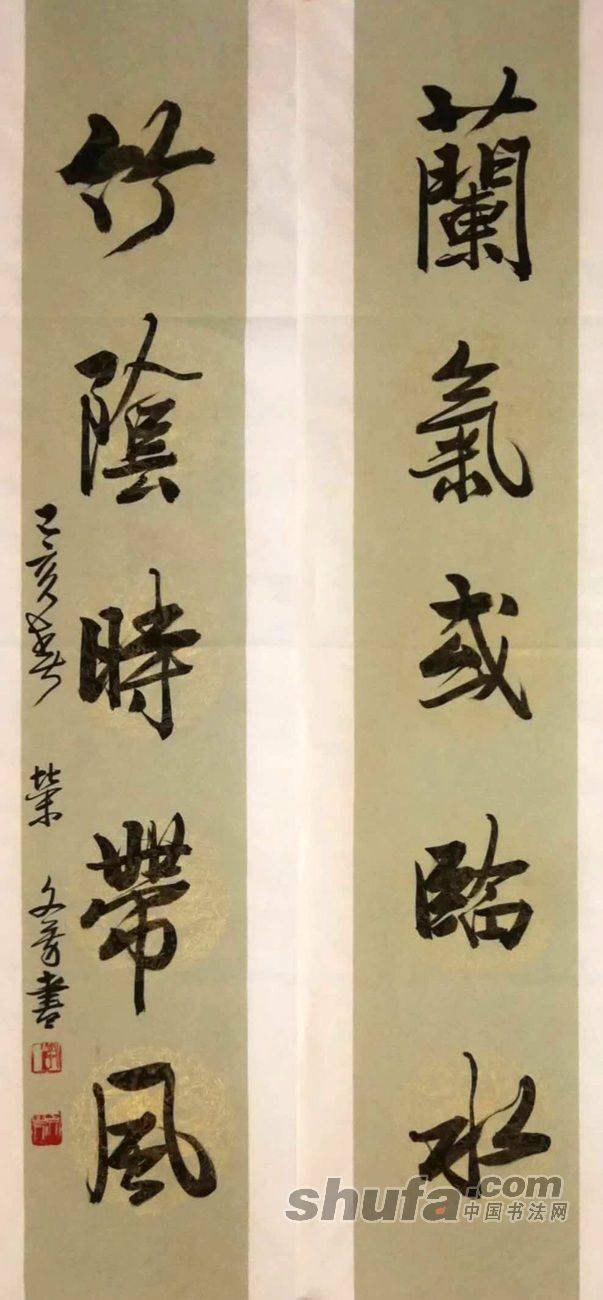 蘭氣或臨水
竹陰時帶風
己亥春 柴 文芳書
shufa.com
中国书法网